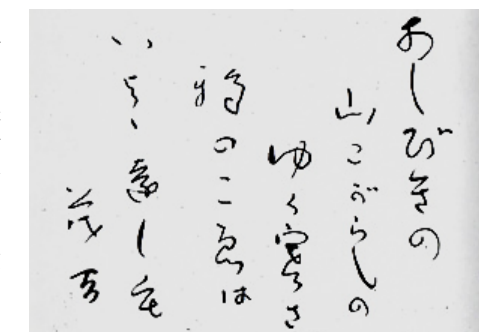 あしびきの
山こがらしの
ゆく寒さ
鴉のこゑは
いよゝ遠しも
茂吉